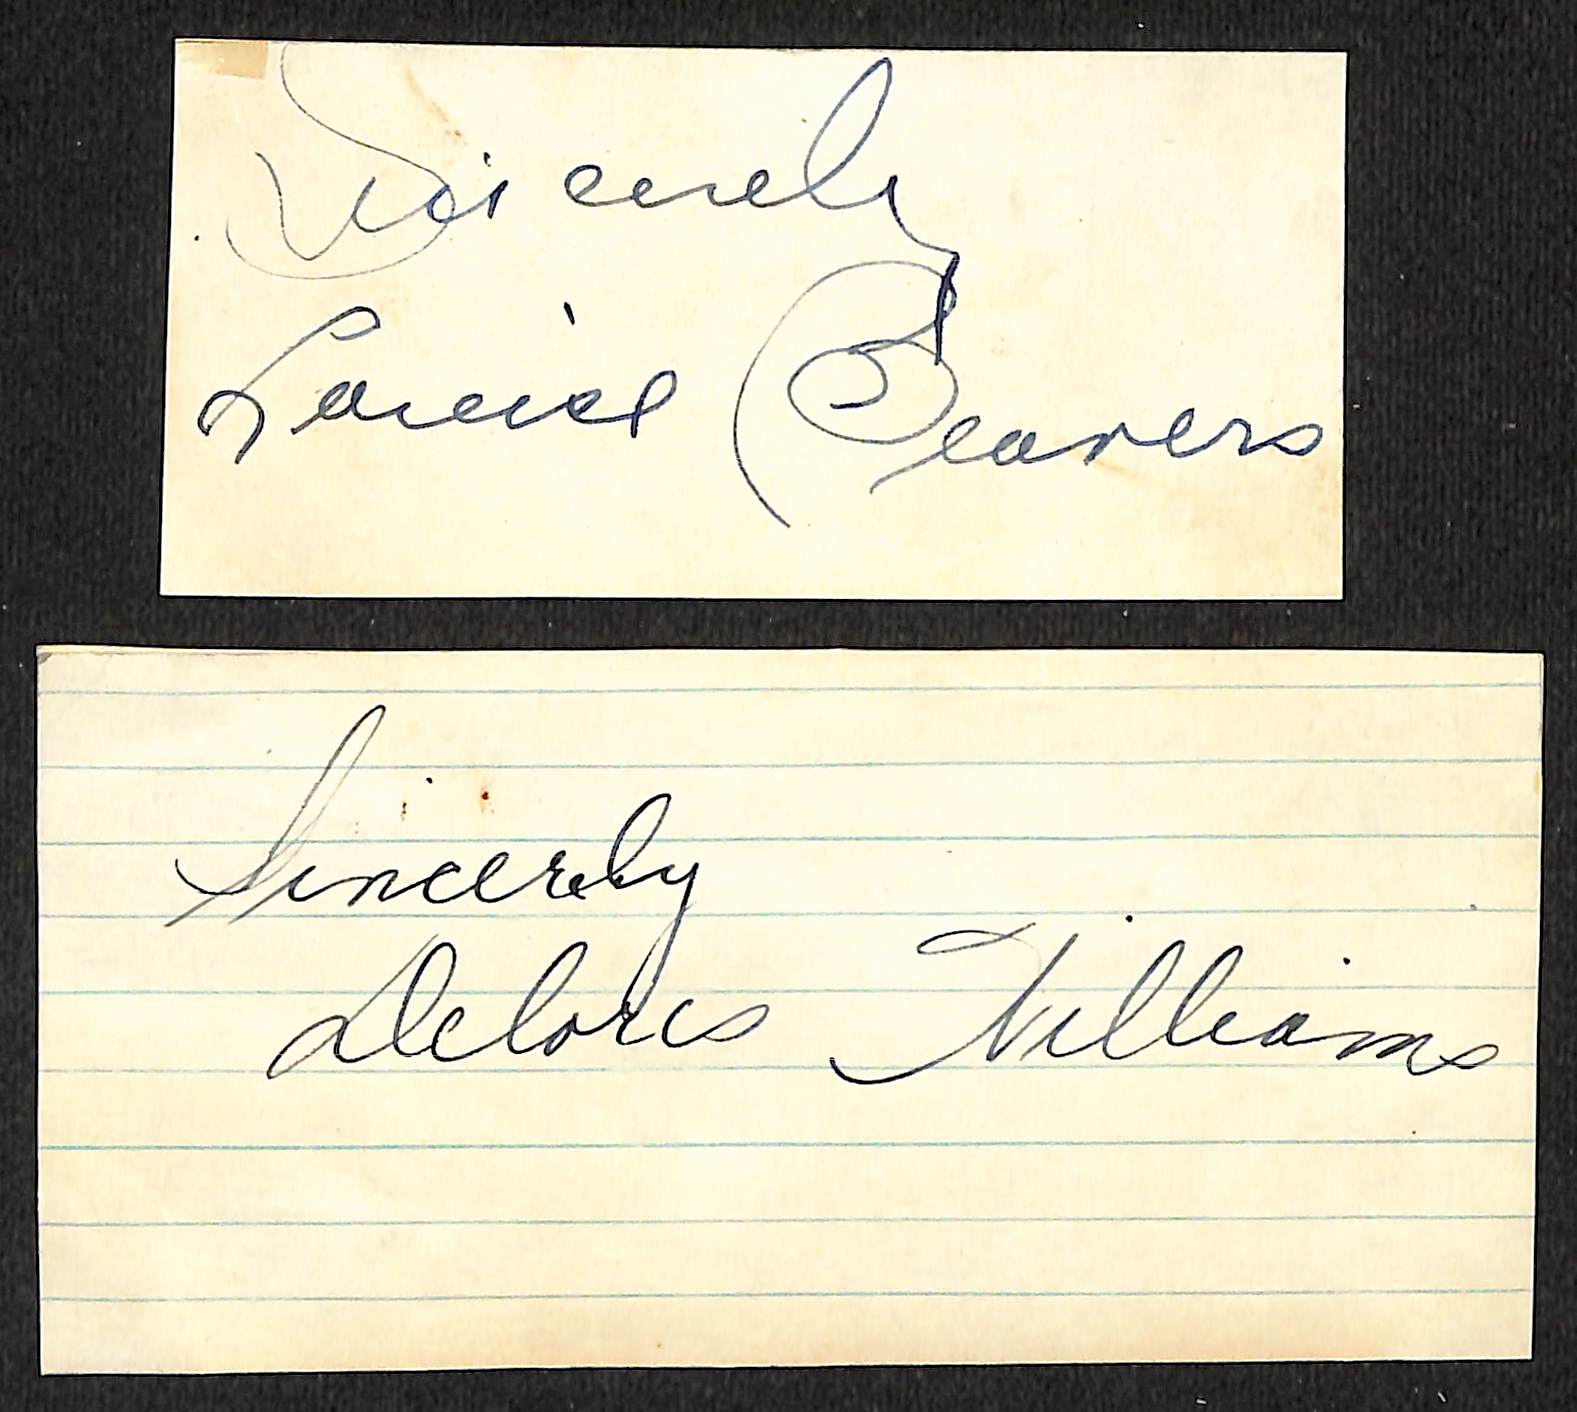 Sincerely
Louise Beavers
Sincerely
Deloris Williams